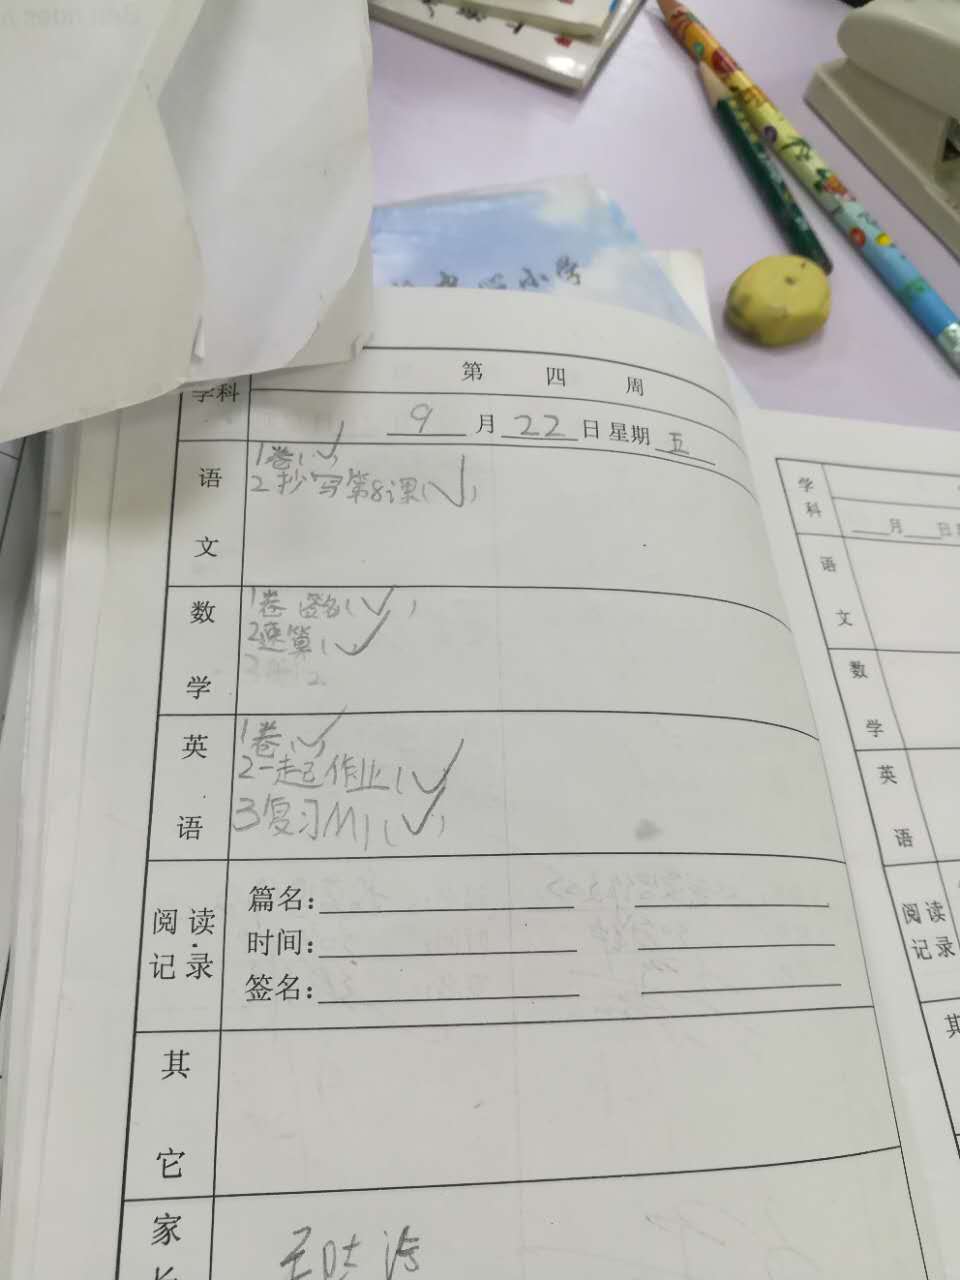 小学
学科
第 四 周
9 月 22 日 星期 五
语文
1 卷(✓)
2 抄写第8课(✓)
数学
1 卷 签名(✓)
2 速算(✓)
英语
1 卷(✓)
2 一起作业(✓)
3 复习M1(✓)
阅读记录
篇名：
时间：
签名：
其它
家长
学科
月 日
语文
数学
英语
阅读记录